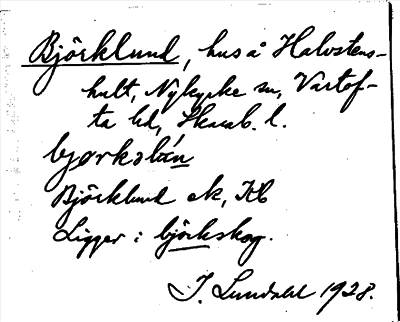 Björklund, hus å Halvstens-
hult, Nykyrke sn, Vartof-
ta hd, Skarab. l.
bjørkslùn
Björklund ek, Kb
Ligger i björkskog.
I. Lundahl 1928.